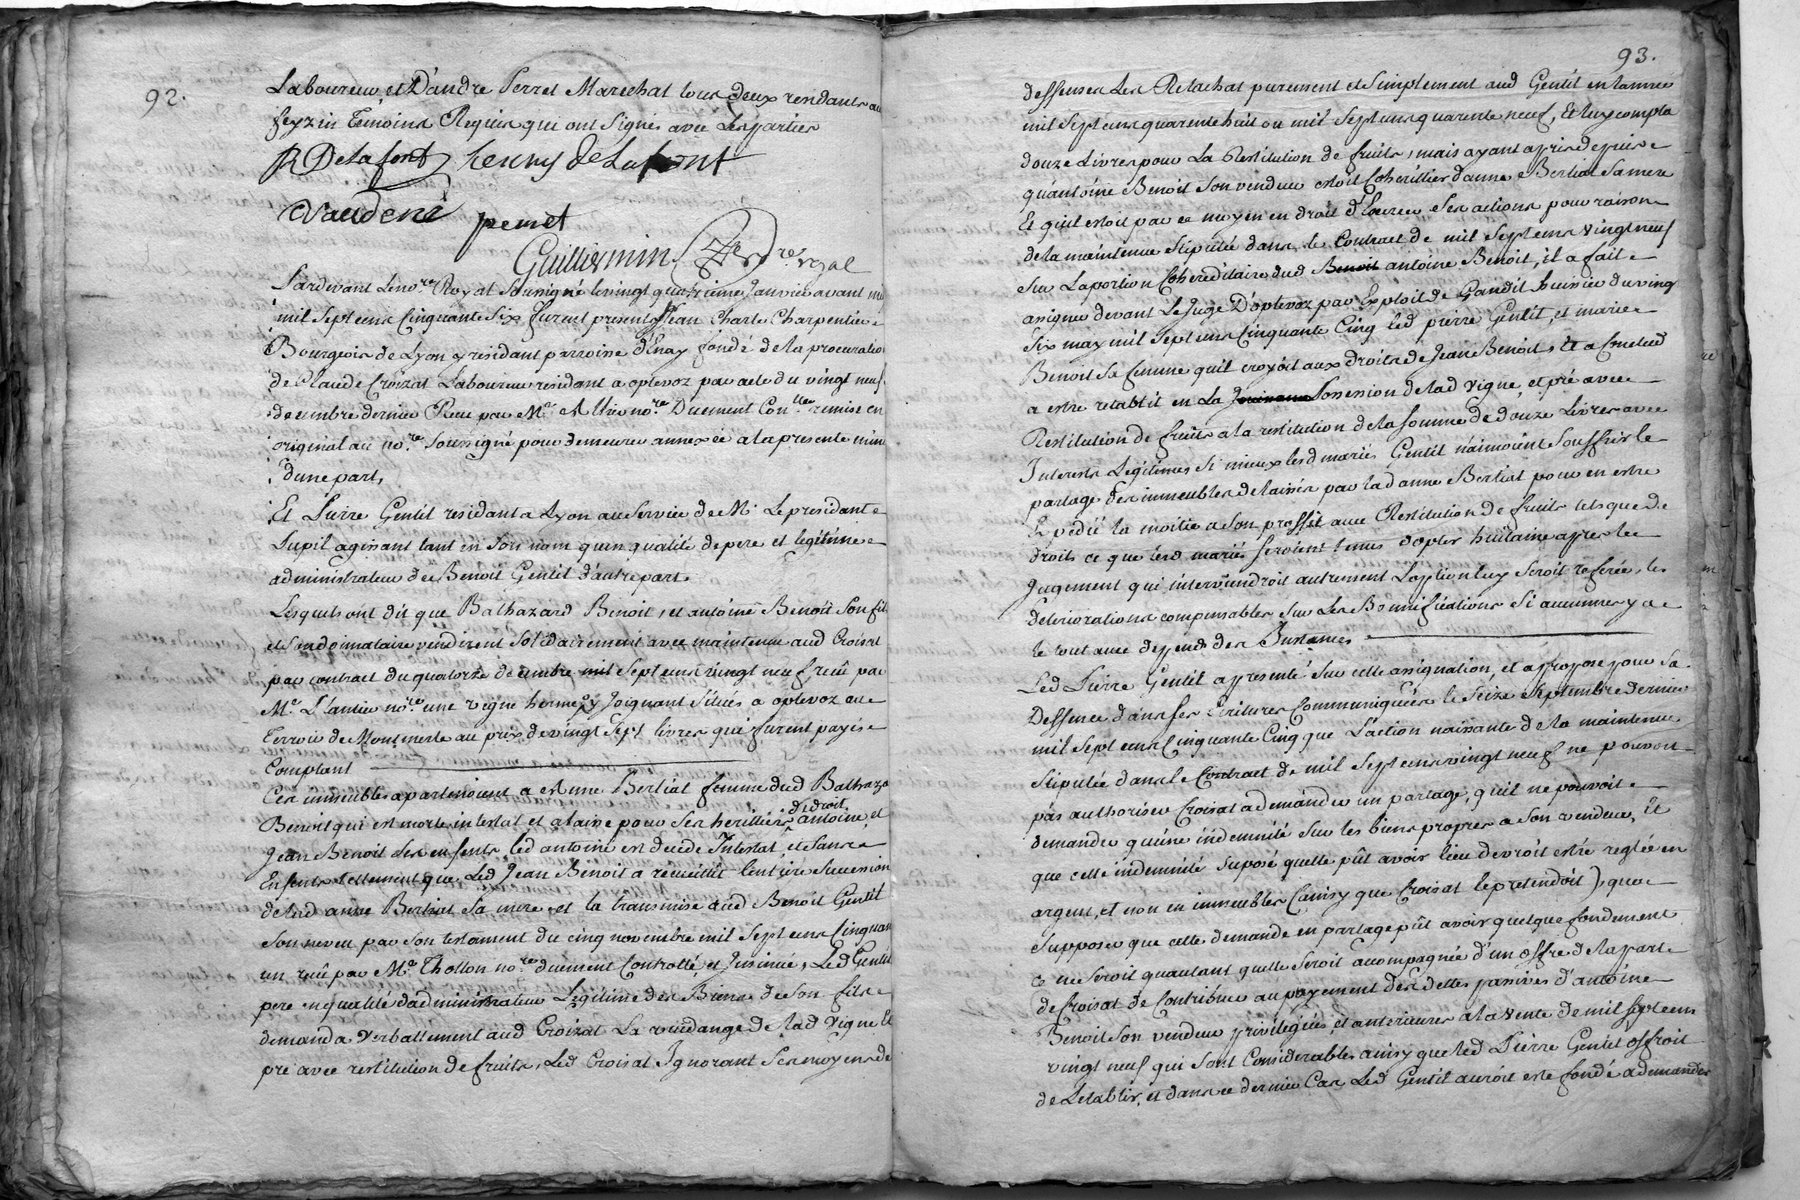 92.
Laboureur, et D'andre Perret Marechal tous deux residants au
feyzin Temoins Requis qui ont Signés avec Les parties
R Delafont henry de Lafont
Vaudené perret
Guilliermin no.re royal
Pardevant Le no.re Royal Soussigné le vingt quatrieme Janvier avant mi
mil Sept cens Cinquante Six furent present Jean Charle Charpentier
Bourgeois de Lyon y residant parroisse d'Enay fondé de la procuration
de Claude Croizat Laboureur residant a optevoz par acte du vingt neuf
decembre dernier Receu par Me. no.re Duement Con.llée remise en
original au no.re Soussigné pour demeurer annexée a la presente min
dune part,
Et Pierre Gentil residant a Lyon au Service de Mr. Le president
Pupil agissant tant en Son nom qu'en qualité de pere et legitime
administrateur de Benoit Gentil d'autre part
Lesquels ont dit que Balthazard Benoit, et antoine Benoit Son fils
et Son donnataire vendirent Solidairement avec maintenue aud Croisat
par contract du quatorze decembre mil Sept cens vingt neuf receu par
Me. no.re une vigne hermes y Joignant Situés a optevoz au
terroir de Montmerle au prix de vingt Sept livres qui furent payés
Comptant
Ces immeubles apartenoient a anne Bertiat femme dud Balthaza
Benoit qui est morte intestat et a laissé pour Ses heritiers de droit antoine, et
Jean Benoit Ses enfents, led antoine est decedé Intestat, et Sans
Enfents tellement que Led Jean Benoit a recueillit l'entiere Succession
de lad anne Bertiat Sa mere et la transmise aud Benoit Gentil
Son neveu par Son testament du cinq novembre mil Sept cens Cinquan
un receu par Me. Thollon no.re duement Controllé, et Insinué, Led Gentil
pere en qualité dadministrateur Legitime des Biens de Son fils
demanda verballement aud Croizat La vuidange de lad vigne Et
pré avec restitution de fruits, Led Croisat Ignorant Ses moyens de
93.
deffenses Les Relachat purement et Simplement aud Gentil en lannée
mil Sept cens quarente huit ou mil Sept cens quarente neuf, Et luy compta
douze Livres pour La Restitution de fruits, mais ayant apris depuis
qu'antoine Benoit Son vendeur estoit Coherittier d'anne Bertiat Sa mere
Et quil estoit par ce moyen en droit d'Exercer Ses actions pour raison
de la maintenue Stipulée dans le Contract de mil Sept cens vingt neuf
Sur La portion Cohereditaire dud Benoit antoine Benoit, il a fait
assigner devant Le Juge D'optevoz par Exploit de Gandit huissier du vingt
Six may mil Sept cens Cinquante Cinq led pierre Gentil, et marie
Benoit Sa femme quil croyoit aux droits de Jean Benoit, Et a Conclud
a estre retablit en La possession de lad vigne, et pré avec
Restitution de fruits a la restitution de la Somme de douze Livres avec
Interests Legitimes Si mieux lesd mariés Gentil n'aimoient Souffrir le
partage des immeubles delaissés par lad anne Bertiat pour en estre
Expedié la moitié a Son proffit avec Restitution de fruits tels que de
droit, ce que lesd mariés Seroient tenus d'opter huitaine apres le
Jugement qui interviendroit autrement L'option luy Seroit referée, les
deteriorations compensables Sur Les Bonnifications Si aucunes y a
le tout avec depend des Instances
Led Pierre Gentil a presenté Sur cette assignation, et a proposé pour Sa
Deffence dans Ses Ecritures Communiquées le Seize Septembre dernier
mil Sept cens Cinquante Cinq que L'action naissante de la maintenue
Stipulée dans le Contract de mil Sept cens vingt neuf ne pouvoit
pas authoriser Croisat a demander un partage, quil ne pouvoit
demander qu'une indemnité Sur les biens propres a Son vendeur, Et
que cette indemnité Supposé quelle pût avoir lieu devroit estre reglée en
argent, et non en immeubles (ainsy que Croisat le pretendoit) que
Supposer que cette demande en partage pût avoir quelque fondement
ce ne Seroit quautant quelle Seroit acompagnée d'un offre de la part
de Croisat de Contribuer au payement des dettes passives d'antoine
Benoit Son vendeur privilegiées, et anterieures a la vente de mil Sept cens
vingt neuf qui Sont Considerables ainsy que led Pierre Gentil offroit
de Letablir, et dans ce dernier Cas Led Gentil auroit esté fondé a demander